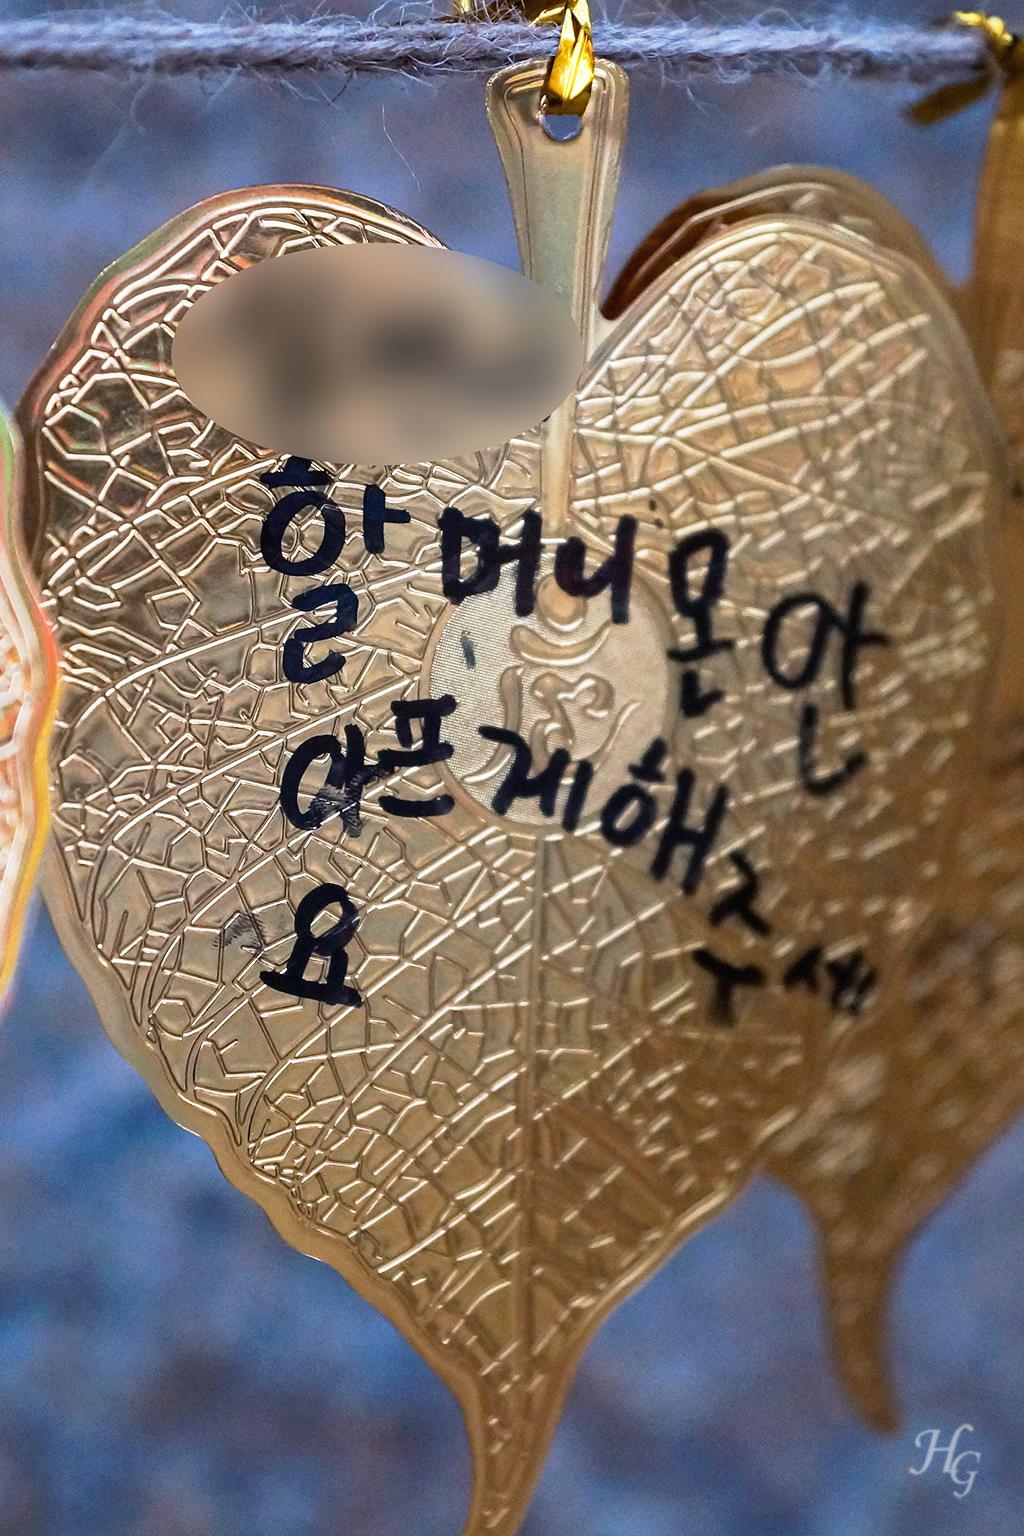 할머니 몸 안
아프게 해주세
요
HG